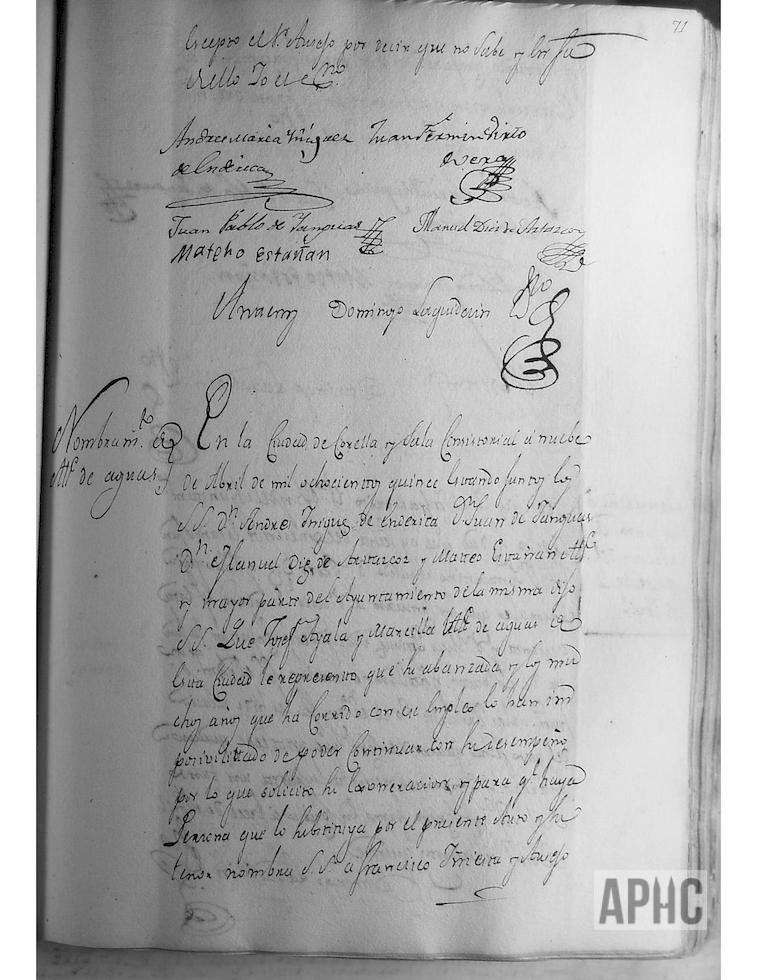 71
Excepto el Sr. Ansejo por decir que no Sabe y en fee
de ello Yo el Essno.
Andres Maria Yñiguez Juan Fermin Virto
de Enderica de Vera
Juan Pablo de Yanguas Manuel Diez de Artazcoz
Matheo Estañan
Ante mi Domingo Laquidein Essno
Nombram.to de
Alc.e de aguas
En la Ciudad de Corella y Sala Consistorial a nuebe
de Abril de mil ochocientos quince Estando Juntos los
SS. Dn. Andres Iñiguez de enderica Dn. Juan de Yanguas
Dn. Manuel Diez de Artazcoz y Matteo Estañan Alc.s
y mayor parte del Ayuntamiento de la misma dijo
S.S. Que Josef Ayala y Marcilla Alc.e de aguas de
Esta Ciudad le represento que su abanzada y los mu
chos años que ha Corrido con ese Empleo lo han im
posivilitado de poder Continuar con su desempeño
por lo que solicito su Exoneracion, y para q.e haya
Persona que lo substituya por el presente Auto y su
tenor nombra S.S. a Francisco Ansejo
APHC